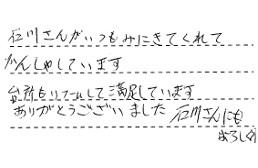 石川さんがいつもみにきてくれて
かんしゃしています
台所もリフォームして満足しています
ありがとうございました 石川さんにも
よろしく